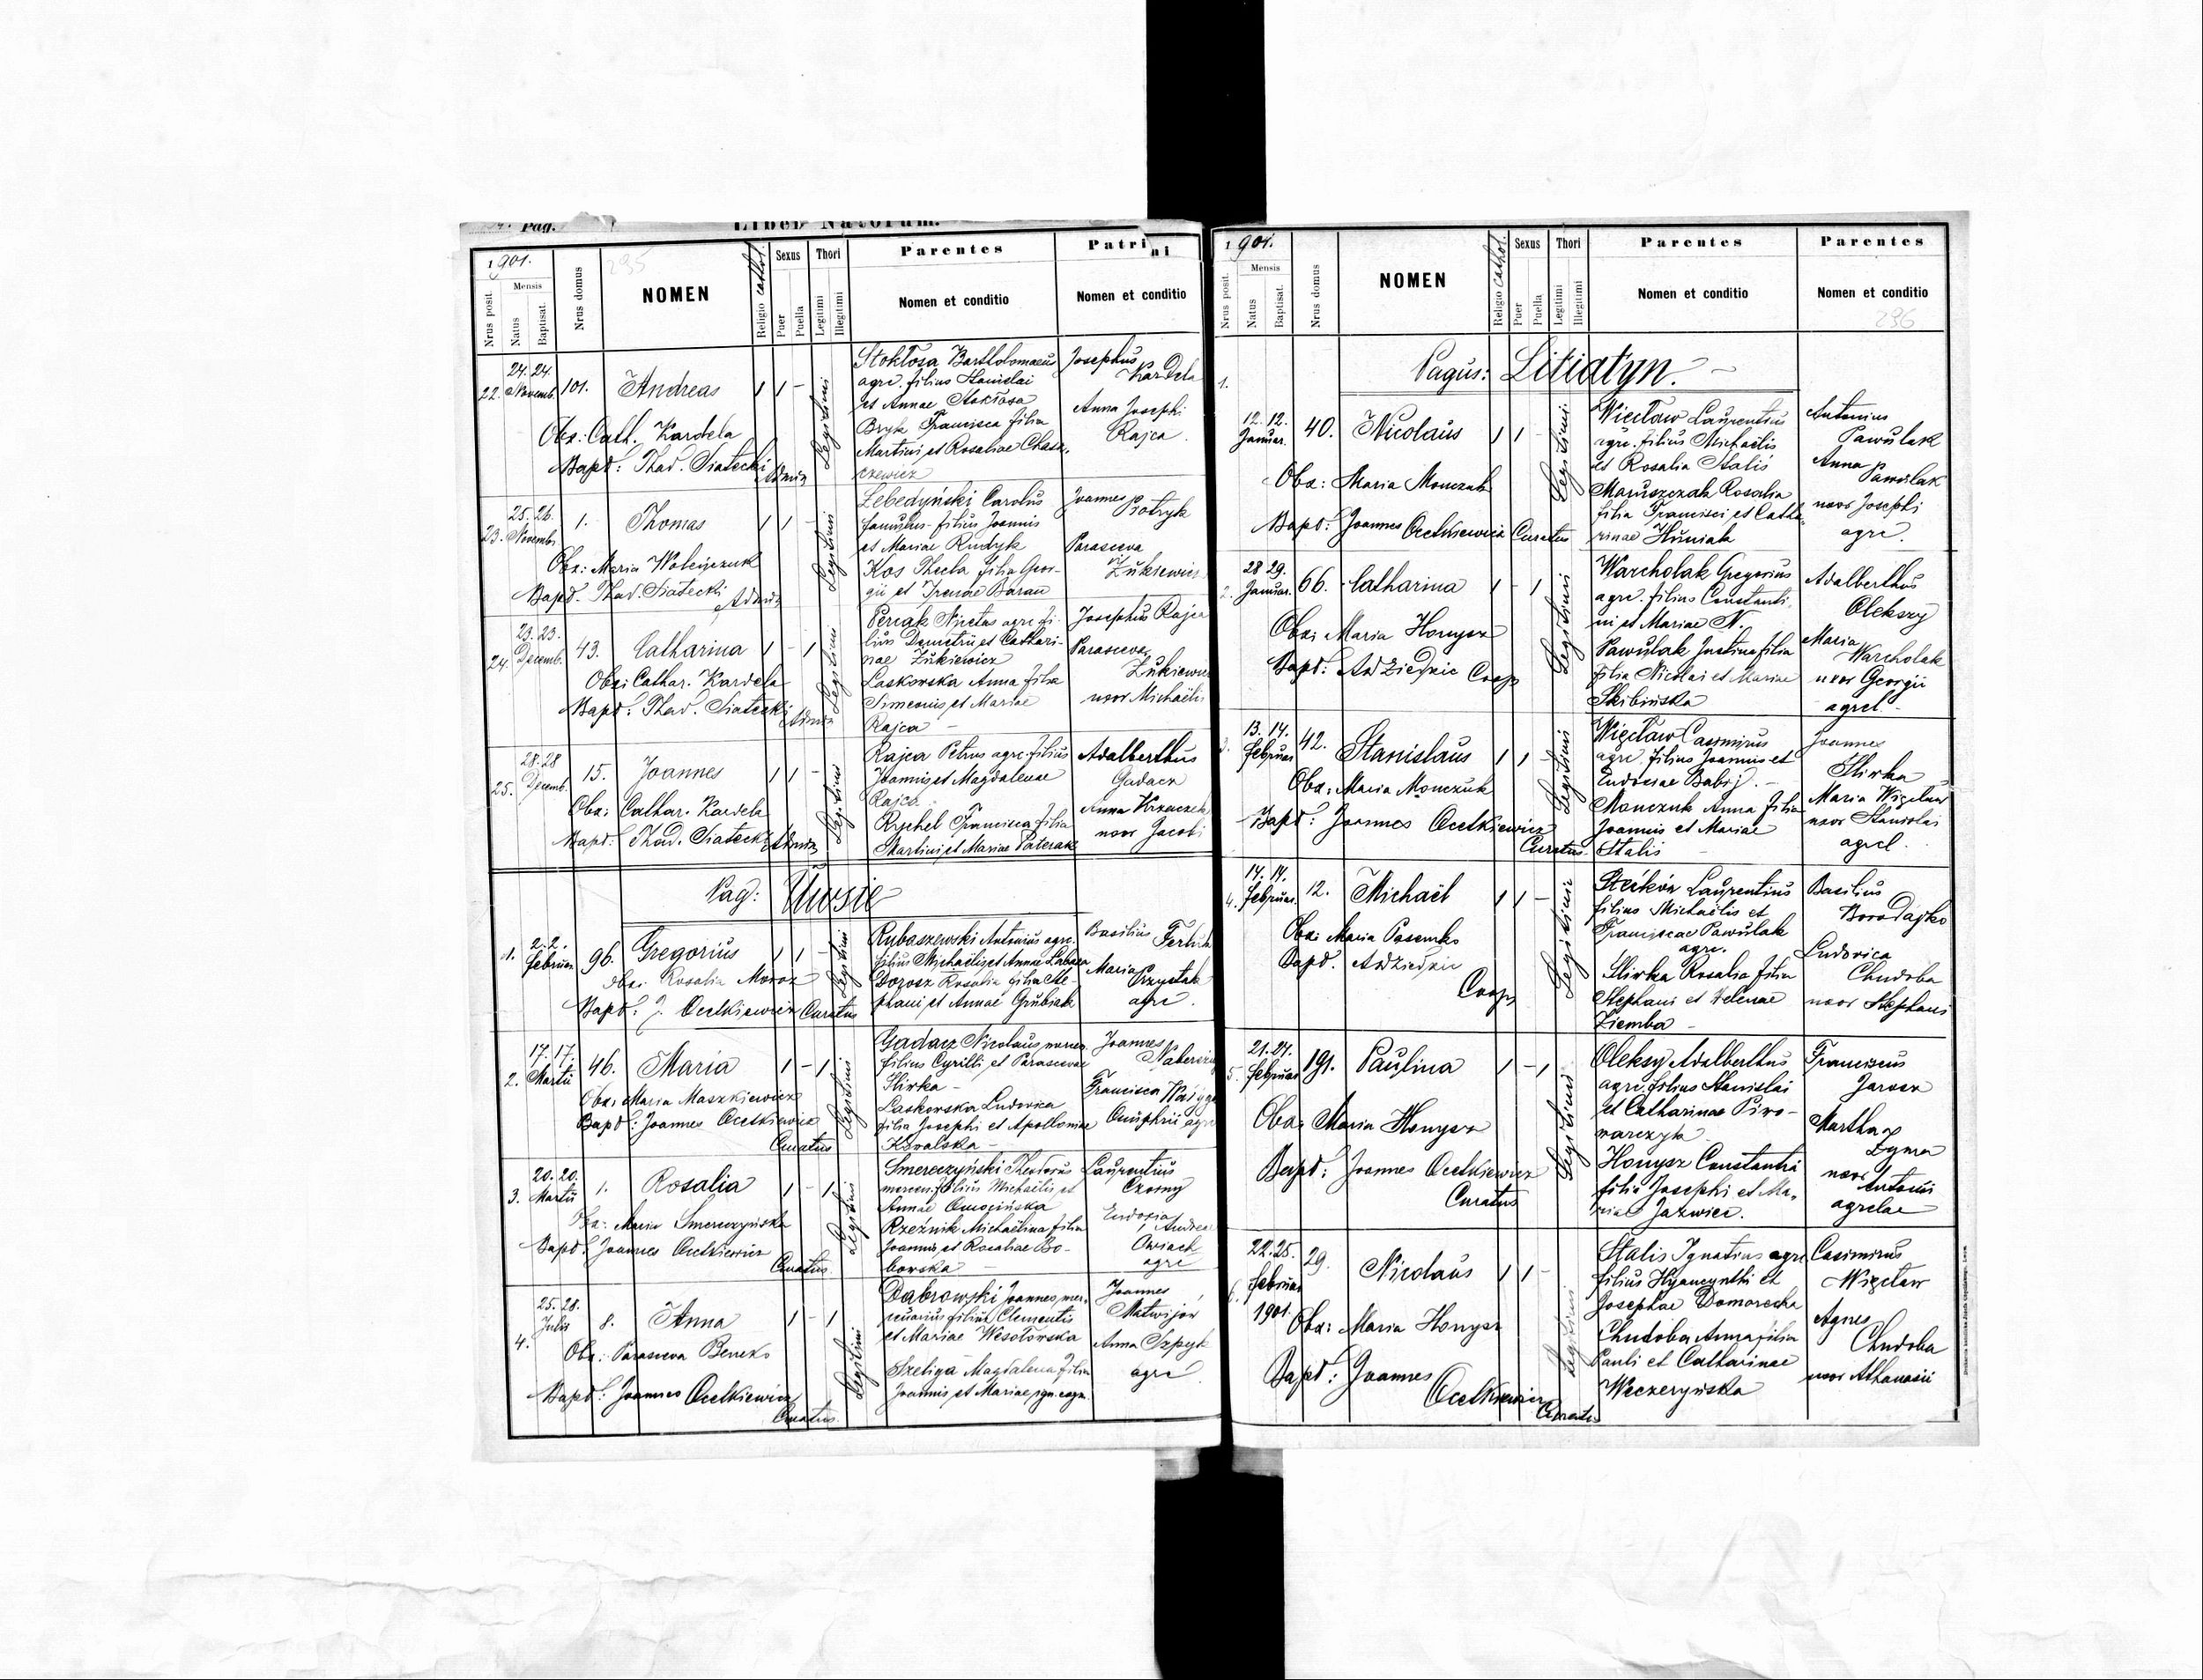 Pag.
Liber Natorum.
1901.
295
Mensis
Nrus posit.
Natus
Baptisat.
Nrus domus
NOMEN
Religio cathol.
Sexus
Puer
Puella
Thori
Legitimi
Illegitimi
Parentes
Nomen et conditio
Patrini
Nomen et conditio
22.
24. 24.
Novemb.
101.
Andreas
1 1 -
Legitimi
Obs: Cath. Kardela
Bapt: Thad. Siatecki
Admin
Stokłosa Bartholomaeus
agre. filius Stanislai
et Annae
Bryk Francisca filia
Martini et Rosaliae
Josephus
Kardela
Anna Josephi
Rajca.
23.
25. 26.
Novemb.
1.
Thomas
1 1 -
Legitimi
Obs: Maria
Bapt. Thad. Siatecki
Admin
Lebedyński Carolus
famulus filius Joannis
et Mariae Rudyk
Kos Thecla filia Geor-
gii et Irenae Baran
Joannes
Piotryk
Parasceva
Żukiewicz
24.
23. 23.
Decemb.
43.
Catharina
1 - 1
Legitimi
Obs: Cathar. Kardela
Bapt: Thad. Siatecki
Admin
agre. fi-
lius Demetrii et Cathari-
nae Żukiewicz
Laskowska Anna filia
Simeonis et Mariae
Rajca -
Josephus Rajca
Parasceva
uxor Michaëlis
25.
28. 28
Decemb.
15.
Joannes
1 1 -
Legitimi
Obs: Cathar. Kardela
Bapt: Thad. Siatecki
Admin
Rajca Petrus agre. filius
Joannis et Magdalenae
Rajca
Rychel Francisca filia
Martini et Mariae Paterak
Adalberthus
Gadacz
Anna
uxor Jacobi
Pag: Uwsie
1.
2. 2.
Februar.
96.
Gregorius
1 1 -
Legitimi
Obs: Rosalia Moroz
Bapt: J. Ocetkiewicz Curatus
Rybaszewski Antonius agre.
filius Michaëlis et Annae
Dorosz Rosalia filia Ste-
phani et Annae Grubiak
Basilius
Maria
Przystak
agre.
2.
17. 17.
Martii
46.
Maria
1 - 1
Legitimi
Obs: Maria Maszkiewicz
Bapt: Joannes Ocetkiewicz
Curatus
Gadacz Nicolaus
filius Cyrilli et Parascevae
Skirka -
Laskowska Ludovica
filia Josephi et Apolloniae
Kowalska -
Joannes
Francisca
Onuphrii
3.
20. 20.
Martii
1.
Rosalia
1 - 1
Legitimi
Obs: Maria Smereczyńska
Bapt: Joannes Ocetkiewicz
Curatus
Smereczyński Theodorus
mercen. filius Michaëlis et
Annae
Rzeźnik Michaëlina filia
Joannis et Rosaliae Bo-
borska -
Laurentius
Czorny
Eudosia
agre
4.
25. 28.
Julii
8.
Anna
1 - 1
Legitimi
Obs: Parasceva Beneko
Bapt: Joannes Ocetkiewicz
Curatus
Dąbrowski Joannes mer-
cenarius filius Clementis
et Mariae Wesołowska
Szeliga Magdalena filia
Joannis et Mariae ign. cogn.
Joannes
Matwijow
Anna Szpyk
agre
1901.
Mensis
Nrus posit.
Natus
Baptisat.
Nrus domus
NOMEN
Religio cathol.
Sexus
Puer
Puella
Thori
Legitimi
Illegitimi
Parentes
Nomen et conditio
Parentes
Nomen et conditio
296
Pagus: Litiatyn.
1.
12. 12.
Januar.
40.
Nicolaus
1 1 -
Legitimi
Obs: Maria Monczuk
Bapt: Joannes Ocetkiewicz Curatus
Więcław Laurentius
agre. filius Michaëlis
et Rosalia Stalis
Maruszczak Rosalia
filia Francisci et Catha-
rinae Huniak
Antonius
Pawulak
Anna
Pawulak
uxor Josephi
agre.
2.
28 29.
Januar.
66.
Catharina
1 - 1
Legitimi
Obs: Maria Honysz
Bapt: Ad Ziedzic Coop
Warcholak Gregorius
agre. filius Constanti-
ni et Mariae N.
Pawulak Justina filia
filia Nicolai et Mariae
Skibińska
Adalberthus
Oleksy
Maria
Warcholak
uxor Georgii
agrel.
3.
13. 14.
Februar
42.
Stanislaus
1 1
Legitimi
Obs: Maria Monczuk
Bapt: Joannes Ocetkiewicz
Curatus
Więcław Casimirus
agre. filius Joannis et
Eudosiae Babij. -
Monczuk Anna filia
Joannis et Mariae
Stalis -
Joannes
Skirka
Maria Więcław
uxor Stanislai
agrel.
4.
14. 14.
Februar.
12.
Michaël
1 1 -
Legitimi
Obs: Maria Pasemko
Bapt. Ad Ziedzic
Coop
Laurentius
filius Michaëlis et
Franciscae Pawulak
agre.
Skirka Rosalia filia
Stephani et Helenae
Ziemba -
Basilius
Borodajko
Ludovica
Chudoba
uxor Stephani
5.
21. 24.
Februar
191.
Paulina
1 - 1
Legitimi
Obs: Maria Honysz
Bapt: Joannes Ocetkiewicz
Curatus
Oleksy Adalberthus
agre. filius Stanislai
et Catharinae Piwo-
warczyk
Honysz Constantia
filia Josephi et Ma-
riae Jazwiec.
Franciscus
Jarosz
Martha
Dyma
uxor
Antonii
agrelae
6.
22. 25.
Februar
1901.
29.
Nicolaus
1 1 -
Legitimi
Obs: Maria Honysz
Bapt: Joannes
Ocetkiewicz
Curatus
Stalis Ignatius agre
filius Hyacynthi et
Josephae Domorecka
Chudoba Anna filia
Pauli et Catharinae
Weczeryńska
Casimirus
Więcław
Agnes
Chudoba
uxor Athanasii